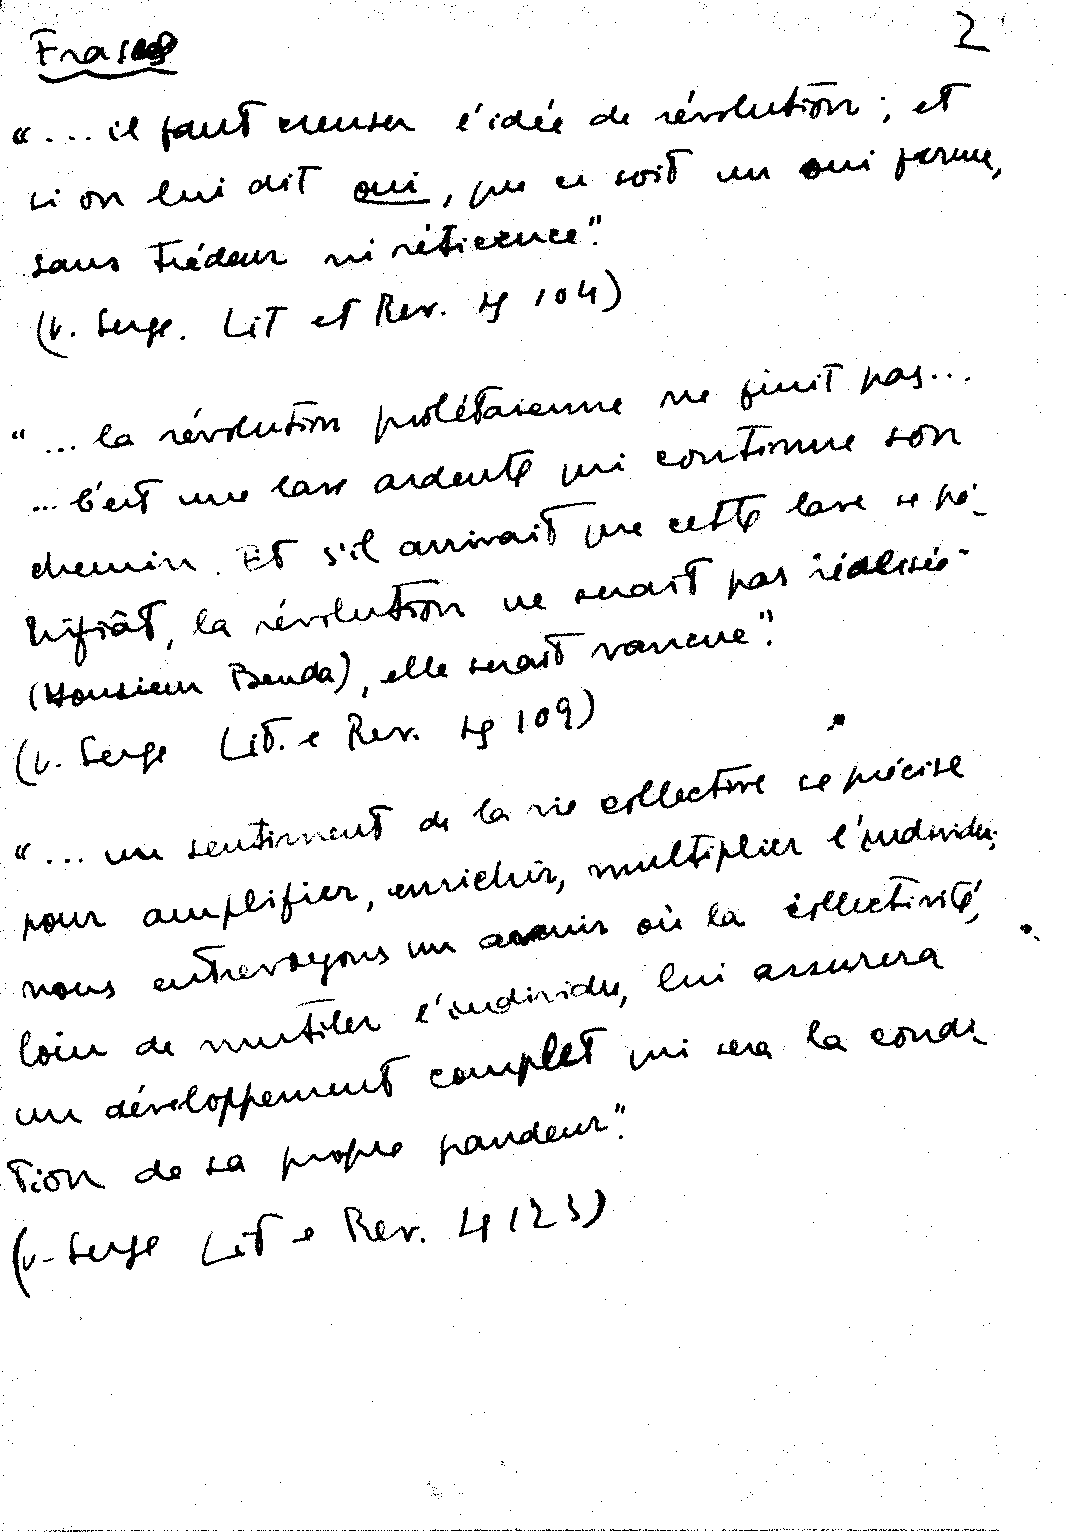 Frases
2
"... il faut creuser l'idée de révolution ; et
si on lui dit oui, que ce soit un oui ferme,
sans tiédeur ni réticence".
(V. Serge. Lit et Rev. pg 104)
"... la révolution prolétarienne ne finit pas...
... C'est une lave ardente qui continue son
chemin. Et s'il arrivait que cette lave se pé-
trifiât, la révolution ne serait pas réalisée
(Monsieur Benda), elle serait vaincue".
(V. Serge Lit. e Rev. pg 109)
"... un sentiment de la vie collective se précise
pour amplifier, enrichir, multiplier l'individu;
nous entrevoyons un avenir où la collectivité,
loin de mutiler l'individu, lui assurera
un développement complet qui sera la condi
tion de sa propre grandeur".
(V. Serge Lit e Rev. pg 123)